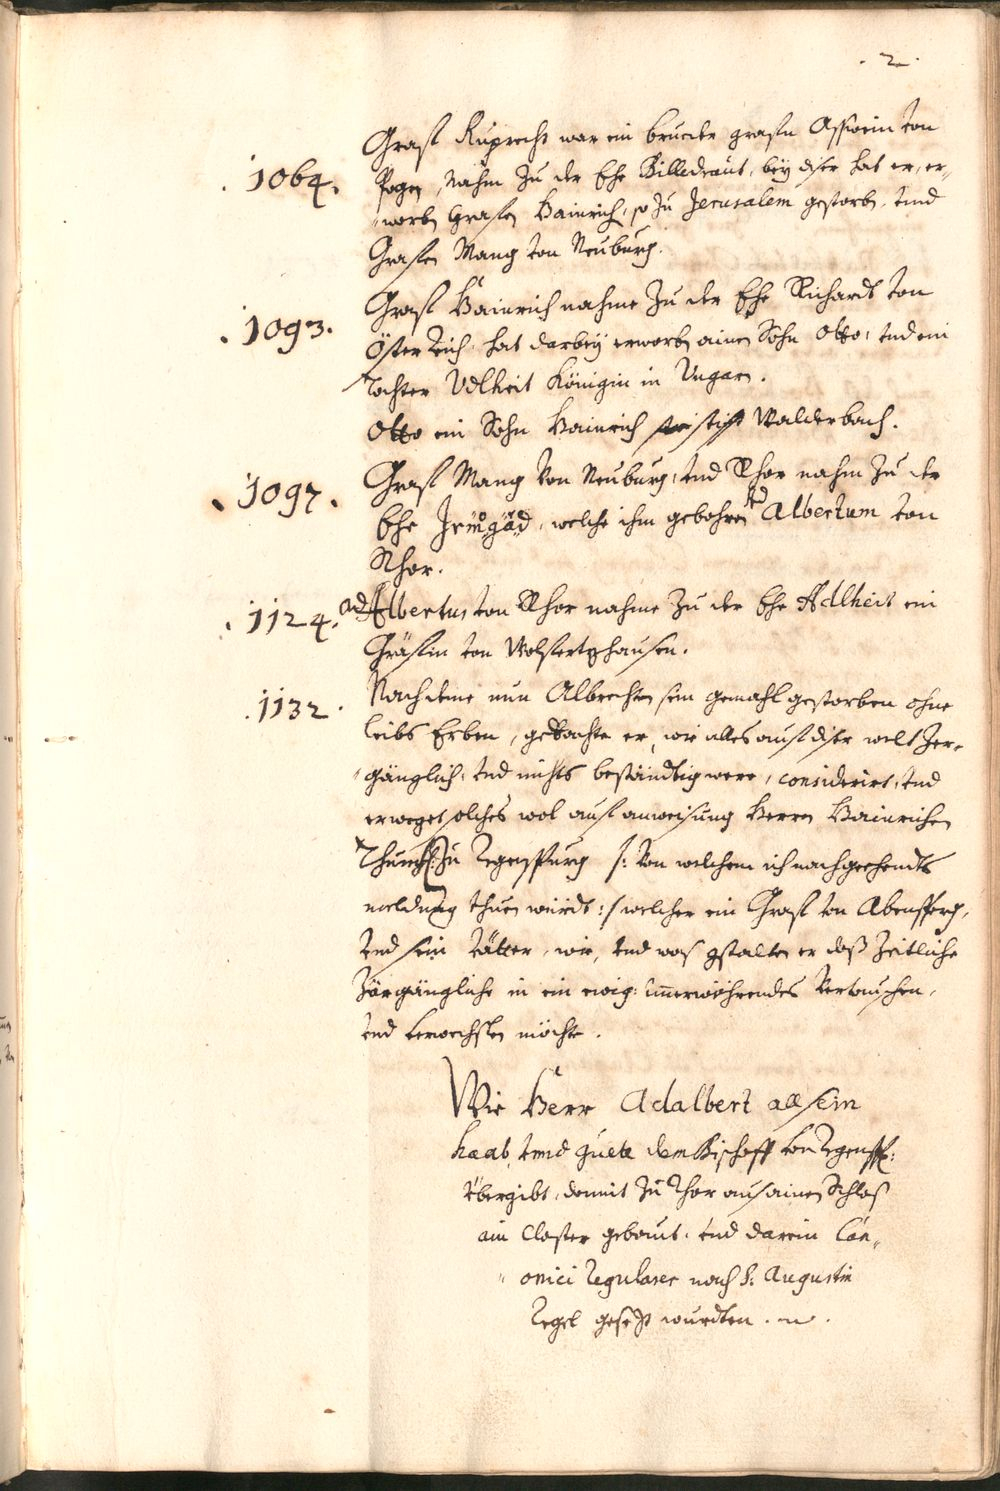 . 2 .
Graf Ruprecht war ein bruder grafen Asswein von
. 1064 . Pogen, nahm zu der Ehe Billedraut, bey diser hat er, er„
„worben Grafen Hainrich, so zu Jerusalem gestorben, vnd
Grafen Mang von Neuburg.
Graf Hainrich nahme zu der Ehe Richardt von
. 1093 . Österreich, hat darbey erworben ainen Sohn Otto, vnd ein
Tochter Adlheit Königin in Ungarn.
Otto ein Sohn Hainrich stifft Walderbach.
. 1097 . Graf Mang Von Neuburg, vnd Rhor nahm zu der
Ehe Irmgäd, welche ihm gebohren Ad Albertum von
Rhor.
. 1124 . ad Albertus von Rhor nahme zu der Ehe Adlheit ein
Gräfin von Wolfertzhausen.
. 1132 . Nachdeme nun Albrechten sein gemahl gestorben ohne
leibs Erben, gedachte er, wie alles auf diser welt zer„
„gänglich, vnd nichts beständtig were, considerirt, vnd
erweget solches wol auf anweisung Herrn Hainrichen
Thumb: zu Regenspurg /: Von welchem ich nachgeehendts
meldung thuen würdt :/ welcher ein Graf von Abensperg,
vnd sein vätter, wie, vnd was gstalten er daß Zeitliche
Zörgängliche in ein ewig: immerwöhrendes Vertauschen,
vnd verwechslen möchte.
Wie Herr Adalbert all sein
haab, vnnd guett dem Bischoff von Regensp:
Übergibt, damit zu Rhor aus ainen Schloß
ain Closter gebaut, vnd darein Can„
„onici Regulares nach S: Augustin
Regel gesetzt wurdten.